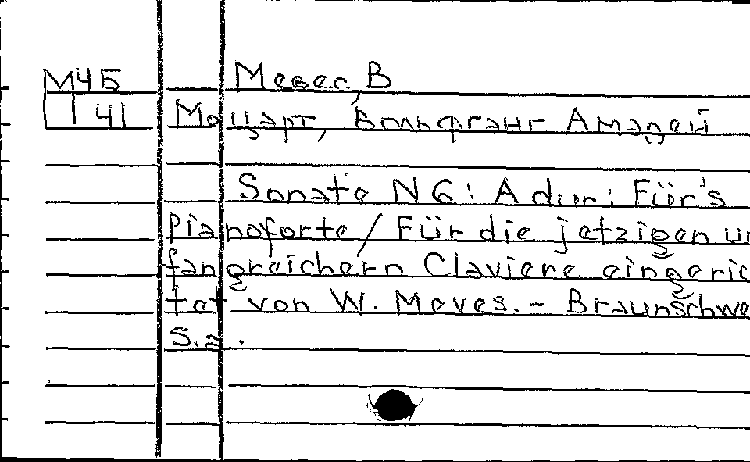 М45 Мевес, В
141 Моцарт, Вольфганг Амадей
Sonate N 6: A dur: Für's
Pianoforte / Für die jetzigen un
fangreichern Claviere eingeric
tet von W. Meves. - Braunschwe
S.a.